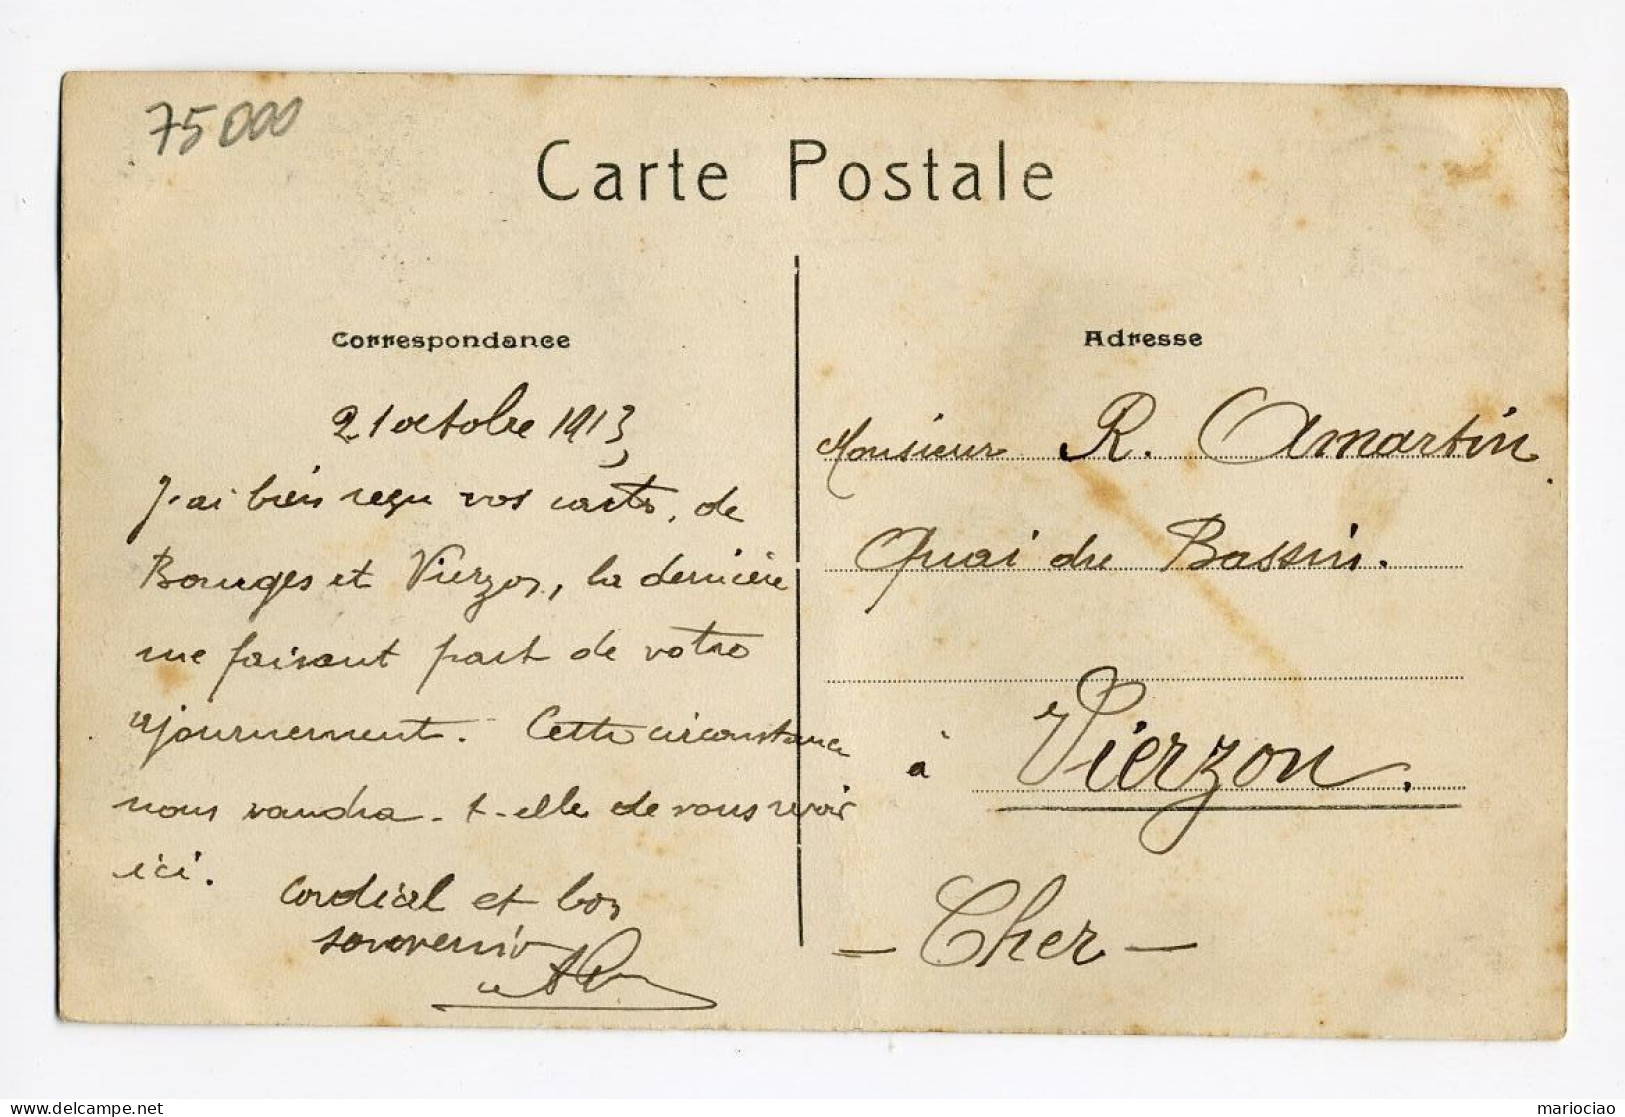 75000
Carte Postale
Correspondance
21 octobre 1913
J'ai bien reçu vos cartes, de
Bourges et Vierzon, la dernière
me faisant part de votre
ajournement. Cette circonstance
nous vaudra-t-elle de vous revoir
ici.
Cordial et bon
souvenir
Adresse
Monsieur R. Amartin
Quai du Bassin.
à Vierzon.
- Cher -
mariociao